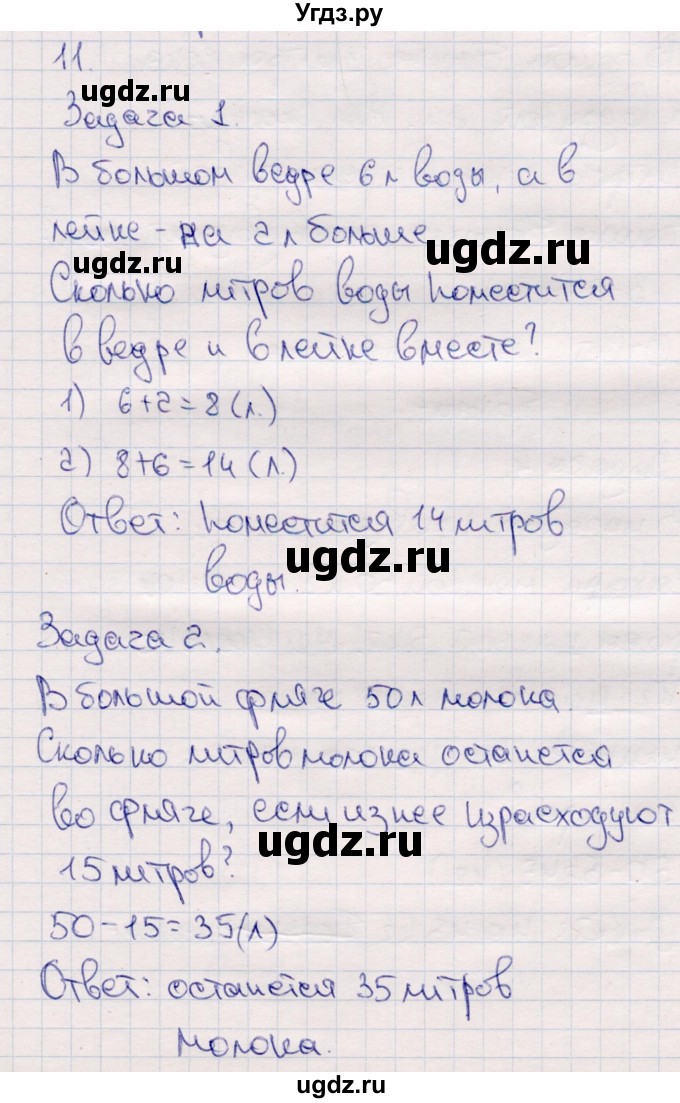 Угдз.ру
11.
ugdz.ru
Задача 1.
В большом ведре 6 л воды, а в
лейке - на 2 л больше
ugdz.ru
ugdz.ru
Сколько литров воды поместится
в ведре и в лейке вместе?
1) 6+2=8 (л.)
2) 8+6=14 (л.)
Ответ: поместится 14 литров
ugdz.ru
воды.
Задача 2.
В большой фляге 50 л молока.
Сколько литров молока останется
во фляге, если из нее израсходуют
ugdz.ru
15 литров?
50-15=35(л)
Ответ: останется 35 литров
молока.
ugdz.ru